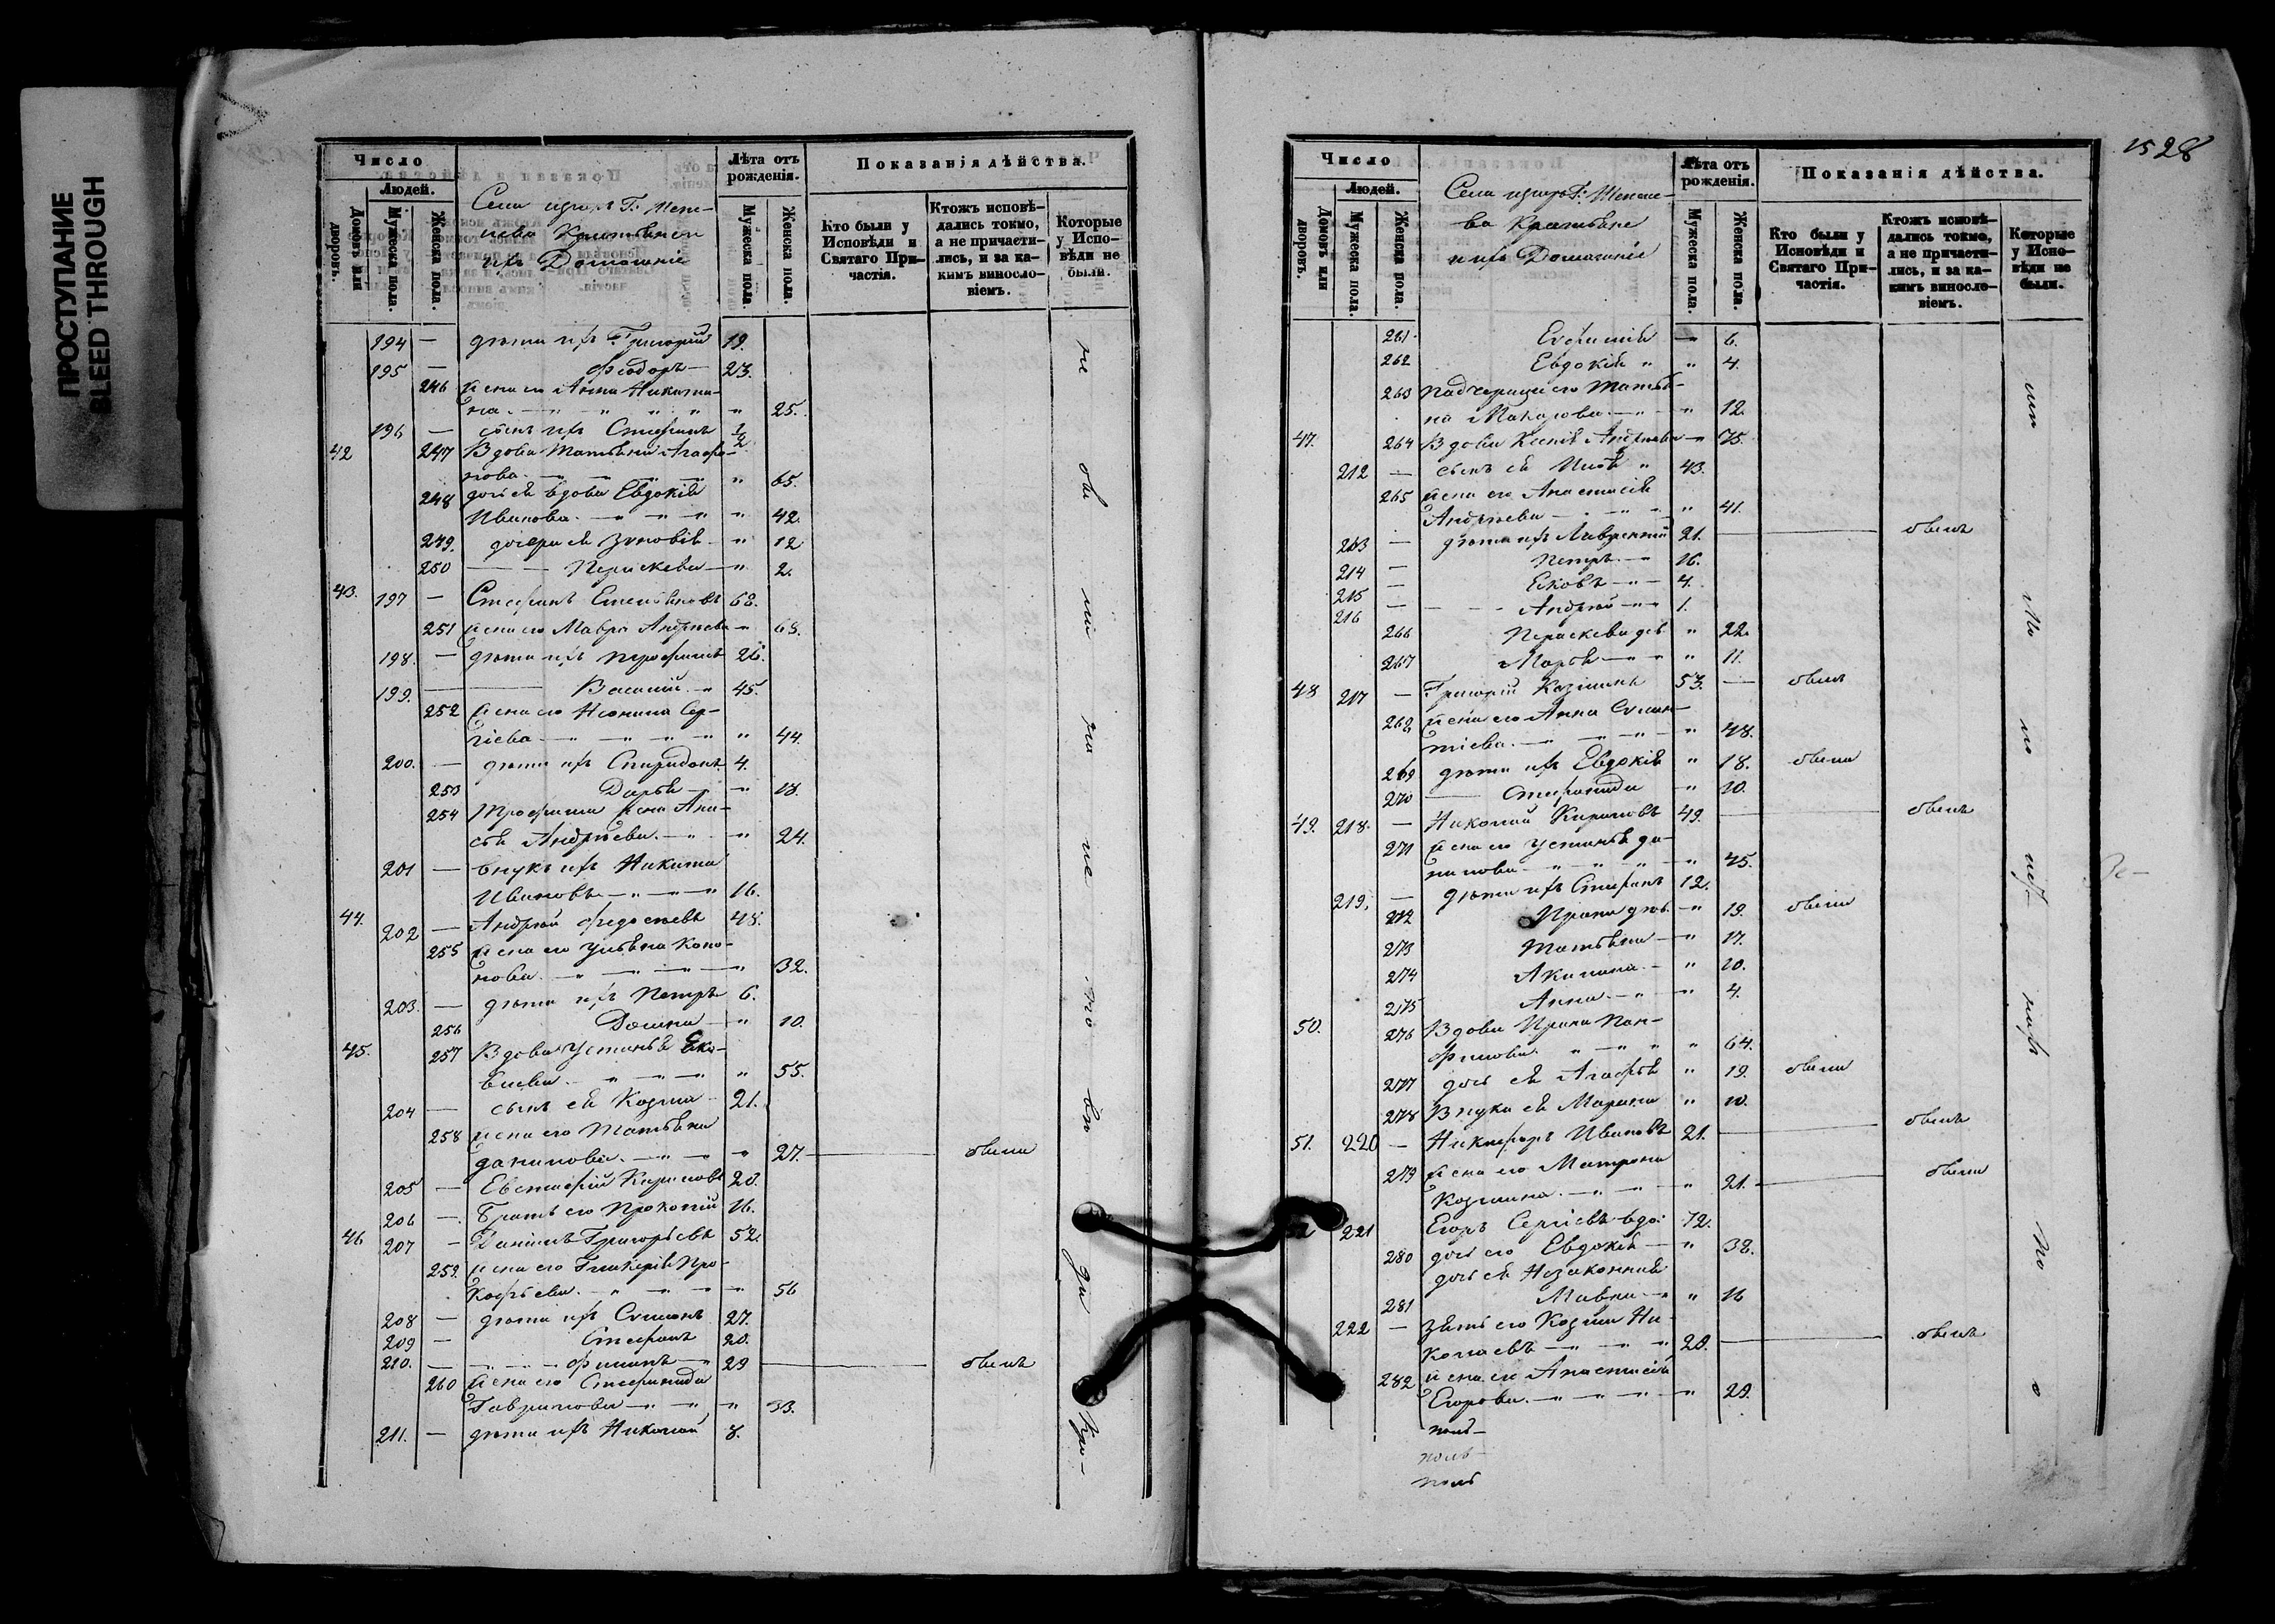 ПРОСТУПАНИЕ
BLEED THROUGH
Число
Людей.
Домовъ или дворовъ.
Мужеска пола.
Женска пола.
Села
Крестьяне
ихъ Домашніе
Лѣта отъ рожденія.
Мужеска пола.
Женска пола.
Показанія дѣйства.
Кто были у Исповѣди и Святаго Причастія.
Ктожъ исповѣдались токмо, а не причастились, и за какимъ винословіемъ.
Которые у Исповѣди не были.
194 — дѣти ихъ Григорій 19.
195 — Ѳедоръ — 23.
246 жена его Анна Никити-
на — " " " " 25.
196 — сынъ ихъ Стефанъ 1/2
42 247 Вдова Татьяна Агафо-
нова — " 65.
248 дочь ея вдова Евдокія
Иванова — " " " " 42.
249. дочери ея Зиновія — " 12
250 — Параскева — " 2.
43. 197 — Стефанъ 68.
251 жена его Мавра Андреева — " 68.
198. — дѣти ихъ Трофимъ 26.
199. — Василій — " 45.
252 жена его Неонила Сер-
гіева — " " " " 44.
200. — дѣти ихъ Спиридонъ 4.
253 Дарья — " 18.
254 Трофима жена Ана-
сія Андреева — " " 24.
201 — внукъ ихъ Никита
Ивановъ — " — " — " 16.
44. 202 — Андрей Федосеевъ 48.
255 жена его Ульяна Коно-
нова — " — " — " 32.
203. — дѣти ихъ Петръ 6.
256 Домна — " 10.
45. 257 Вдова Устинья Яко-
влева — " — " — " " 55.
204 — сынъ ея Козма 21.
258 жена его Татьяна
Данилова — " — " — " 27. — была
205 — Евстафій Кириловъ 20.
206 — Братъ его Прокопій 16.
46 207 — Даніилъ Григорьевъ 52.
259. жена его Гликерія Про-
кофьева — " " " " 56
208 — дѣти ихъ Симонъ 27.
209 — Стефанъ 20.
210. — Филипъ — 29 — былъ
260 жена его Стефанида
Гаврилова — " " " 33.
211. — дѣти ихъ Николай 8.
1528
Число
Людей.
Домовъ или дворовъ.
Мужеска пола.
Женска пола.
Села
Крестьяне
и ихъ Домашніе
Лѣта отъ рожденія.
Мужеска пола.
Женска пола.
Показанія дѣйства.
Кто были у Исповѣди и Святаго Причастія.
Ктожъ исповѣдались токмо, а не причастились, и за какимъ винословіемъ.
Которые у Исповѣди не были.
261. Евфимія — 6.
262 Евдокія " " 4.
263 Падчерица его Татья-
на Макарова — " " 12.
47. 264 Вдова Ксенія Андреева — " 75.
212 — сынъ ея " 43.
265 жена его Анастасія
Андреева — " " " 41.
213 — дѣти ихъ Лаврентій 21. — былъ
214 — Петръ — " 16.
215 — Яковъ — " — 4.
216 — Андрей — " " 1.
266 Параскева дѣв " 22.
267 Марья — " " " 11.
48 217 — Григорій Козминъ 53. — былъ
268 жена его Анна Силан-
тіева — " " " " 48.
269 дѣти ихъ Евдокія " 18. была
270 — Стефанида " 10.
49. 218. — Николай Кириловъ 49. — былъ
271 жена его Устинья Да-
нилова — " " " " 45.
219. — дѣти ихъ Стефанъ 12.
272 Ирина дѣв. — " 19. была
273 Татьяна — " 17.
274 Акилина — " 10.
275 Анна — " — " 4.
50. 276 Вдова Ирина Пан-
филова " " " " 64.
277 дочь ея Агафья " 19. была
278 Внука ея Марина " 10.
51. 220 — Никифоръ Ивановъ 21. — былъ
279 жена его Матрона
Козмина — " " " 21. — была
52 221 Егоръ Сергіевъ вдо: 72.
280 дочь его Евдокія — " 38.
дочь ея Незаконная
281 Мавра — " " 16
222 — зять его Козма Ни-
колаевъ — " " " 28. — былъ
282 жена его Анастасія
Егорова — " " " " 29.